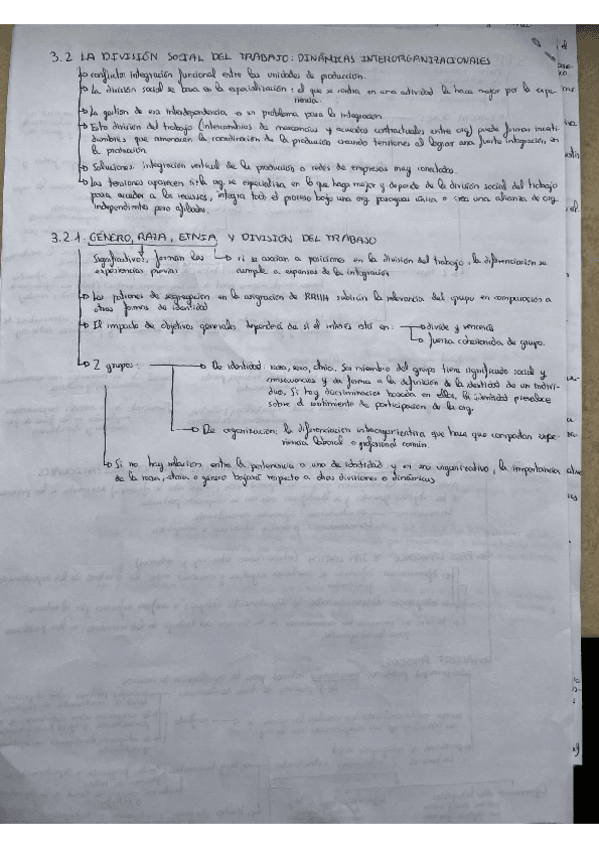 3.2 LA DIVISIÓN SOCIAL DEL TRABAJO: DINÁMICAS INTERORGANIZACIONALES
↳ conflictos integración funcional entre las unidades de producción.
↳ La división social se basa en la especialización: el que se centra en una actividad la hace mejor por la expe-
riencia.
↳ La gestión de esa interdependencia es un problema para la integración
↳ Esta división del trabajo (intercambios de mercancías y acuerdos contractuales entre org) puede formar incerti-
dumbres que amenacen la coordinación de la producción creando tensiones al lograr una fuerte integración en
la producción.
↳ Soluciones: integración vertical de la producción o redes de empresas muy conectadas.
↳ Las tensiones aparecen si la org. se especializa en lo que haga mejor y depende de la división social del trabajo
para acceder a los recursos, integra todo el proceso bajo una org. única o crea una alianza de org.
independientes pero afiliadas.
3.2.1. GÉNERO, RAZA, ETNIA Y DIVISIÓN DEL TRABAJO
Significativos, forman las
experiencias previas
↳ si se asocian a posiciones en la división del trabajo, la diferenciación se
cumple a expensas de la integración
↳ Los patrones de segregación en la asignación de RRHH subirán la relevancia del grupo en comparación a
otras formas de identidad
↳ El impacto de objetivos generales dependerá de si el interés está en:
↳ divide y vencerás
↳ fuerza cohesionada de grupo.
↳ 2 grupos:
De identidad: raza, sexo, etnia. Ser miembro del grupo tiene significado social y
consecuencias y da forma a la definición de la identidad de un indivi-
duo. Si hay discriminación basada en ellos, la identidad prevalece
sobre el sentimiento de participación de la org.
De organización: la diferenciación interorganizativa que hace que compartan expe-
riencia laboral o profesional común.
↳ Si no hay relación entre la pertenencia a uno de identidad y en uno organizativo, la importancia
de la raza, etnia o género bajará respecto a otras divisiones o dinámicas